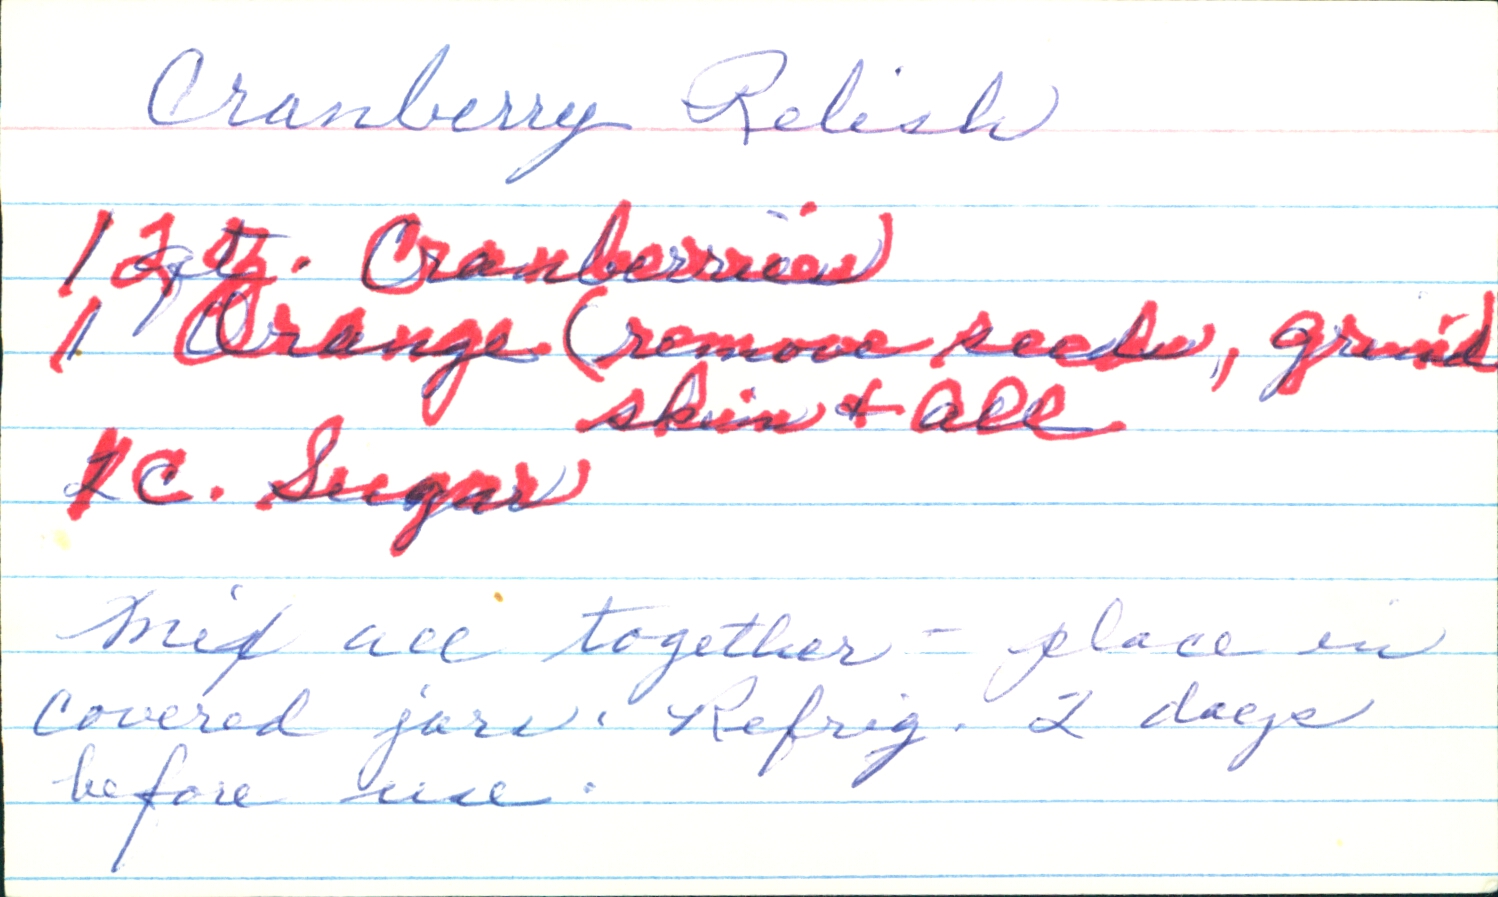 Cranberry Relish
1 qt. Cranberries
1 Orange (remove seeds, grind
skin + all
C. Sugar
Mix all together - place in
covered jars. Refrig. 2 days
before use.